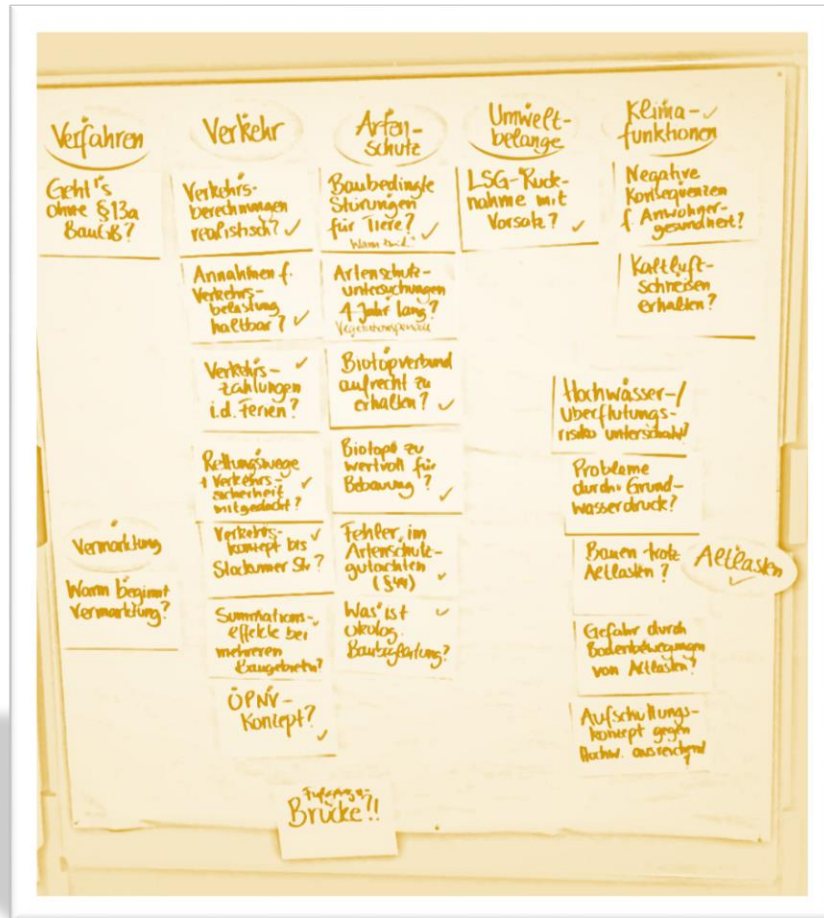 Verfahren
Geht's
ohne §13a
BauGB?
Vermarktung
Wann beginnt
Vermarktung?
Verkehr
Verkehrs-
berechnungen
realistisch? ✓
Annahmen f.
Verkehrs-
belastung
haltbar? ✓
Verkehrs- ✓
zählungen
i.d. Ferien?
Rettungswege
+ Verkehrs-
sicherheit
mitgedacht? ✓
Verkehrs-
konzept bis
Stockumer Str.? ✓
Summations-
effekte bei
mehreren
Baugebieten?
ÖPNV-
Konzept? ✓
Brücke?!
Arten-
schutz
Baubedingte
Störungen
für Tiere? ✓
Artenschutz-
untersuchungen
1 Jahr lang?
Vegetationsperiode
Biotopverbund
aufrecht zu
erhalten? ✓
Biotope zu
wertvoll für
Bebauung? ✓
Fehler im
Artenschutz-
gutachten
(§44) ✓
Was ist ✓
ökolog.
Baubegleitung?
Umwelt-
belange
LSG-Rück-
nahme mit
Vorsatz? ✓
Klima- ✓
funktionen
Negative
Konsequenzen
f. Anwohner-
gesundheit?
Kaltluft-
schneisen
erhalten?
Hochwasser-/
Überflutungs-
risiko unterschätzt?
Probleme
durch Grund-
wasserdruck?
Altlasten
✓
Bauen trotz
Altlasten?
Gefahr durch
Bodenbewegungen
von Altlasten?
Aufschüttungs-
konzept gegen
Hochw. ausreichend?